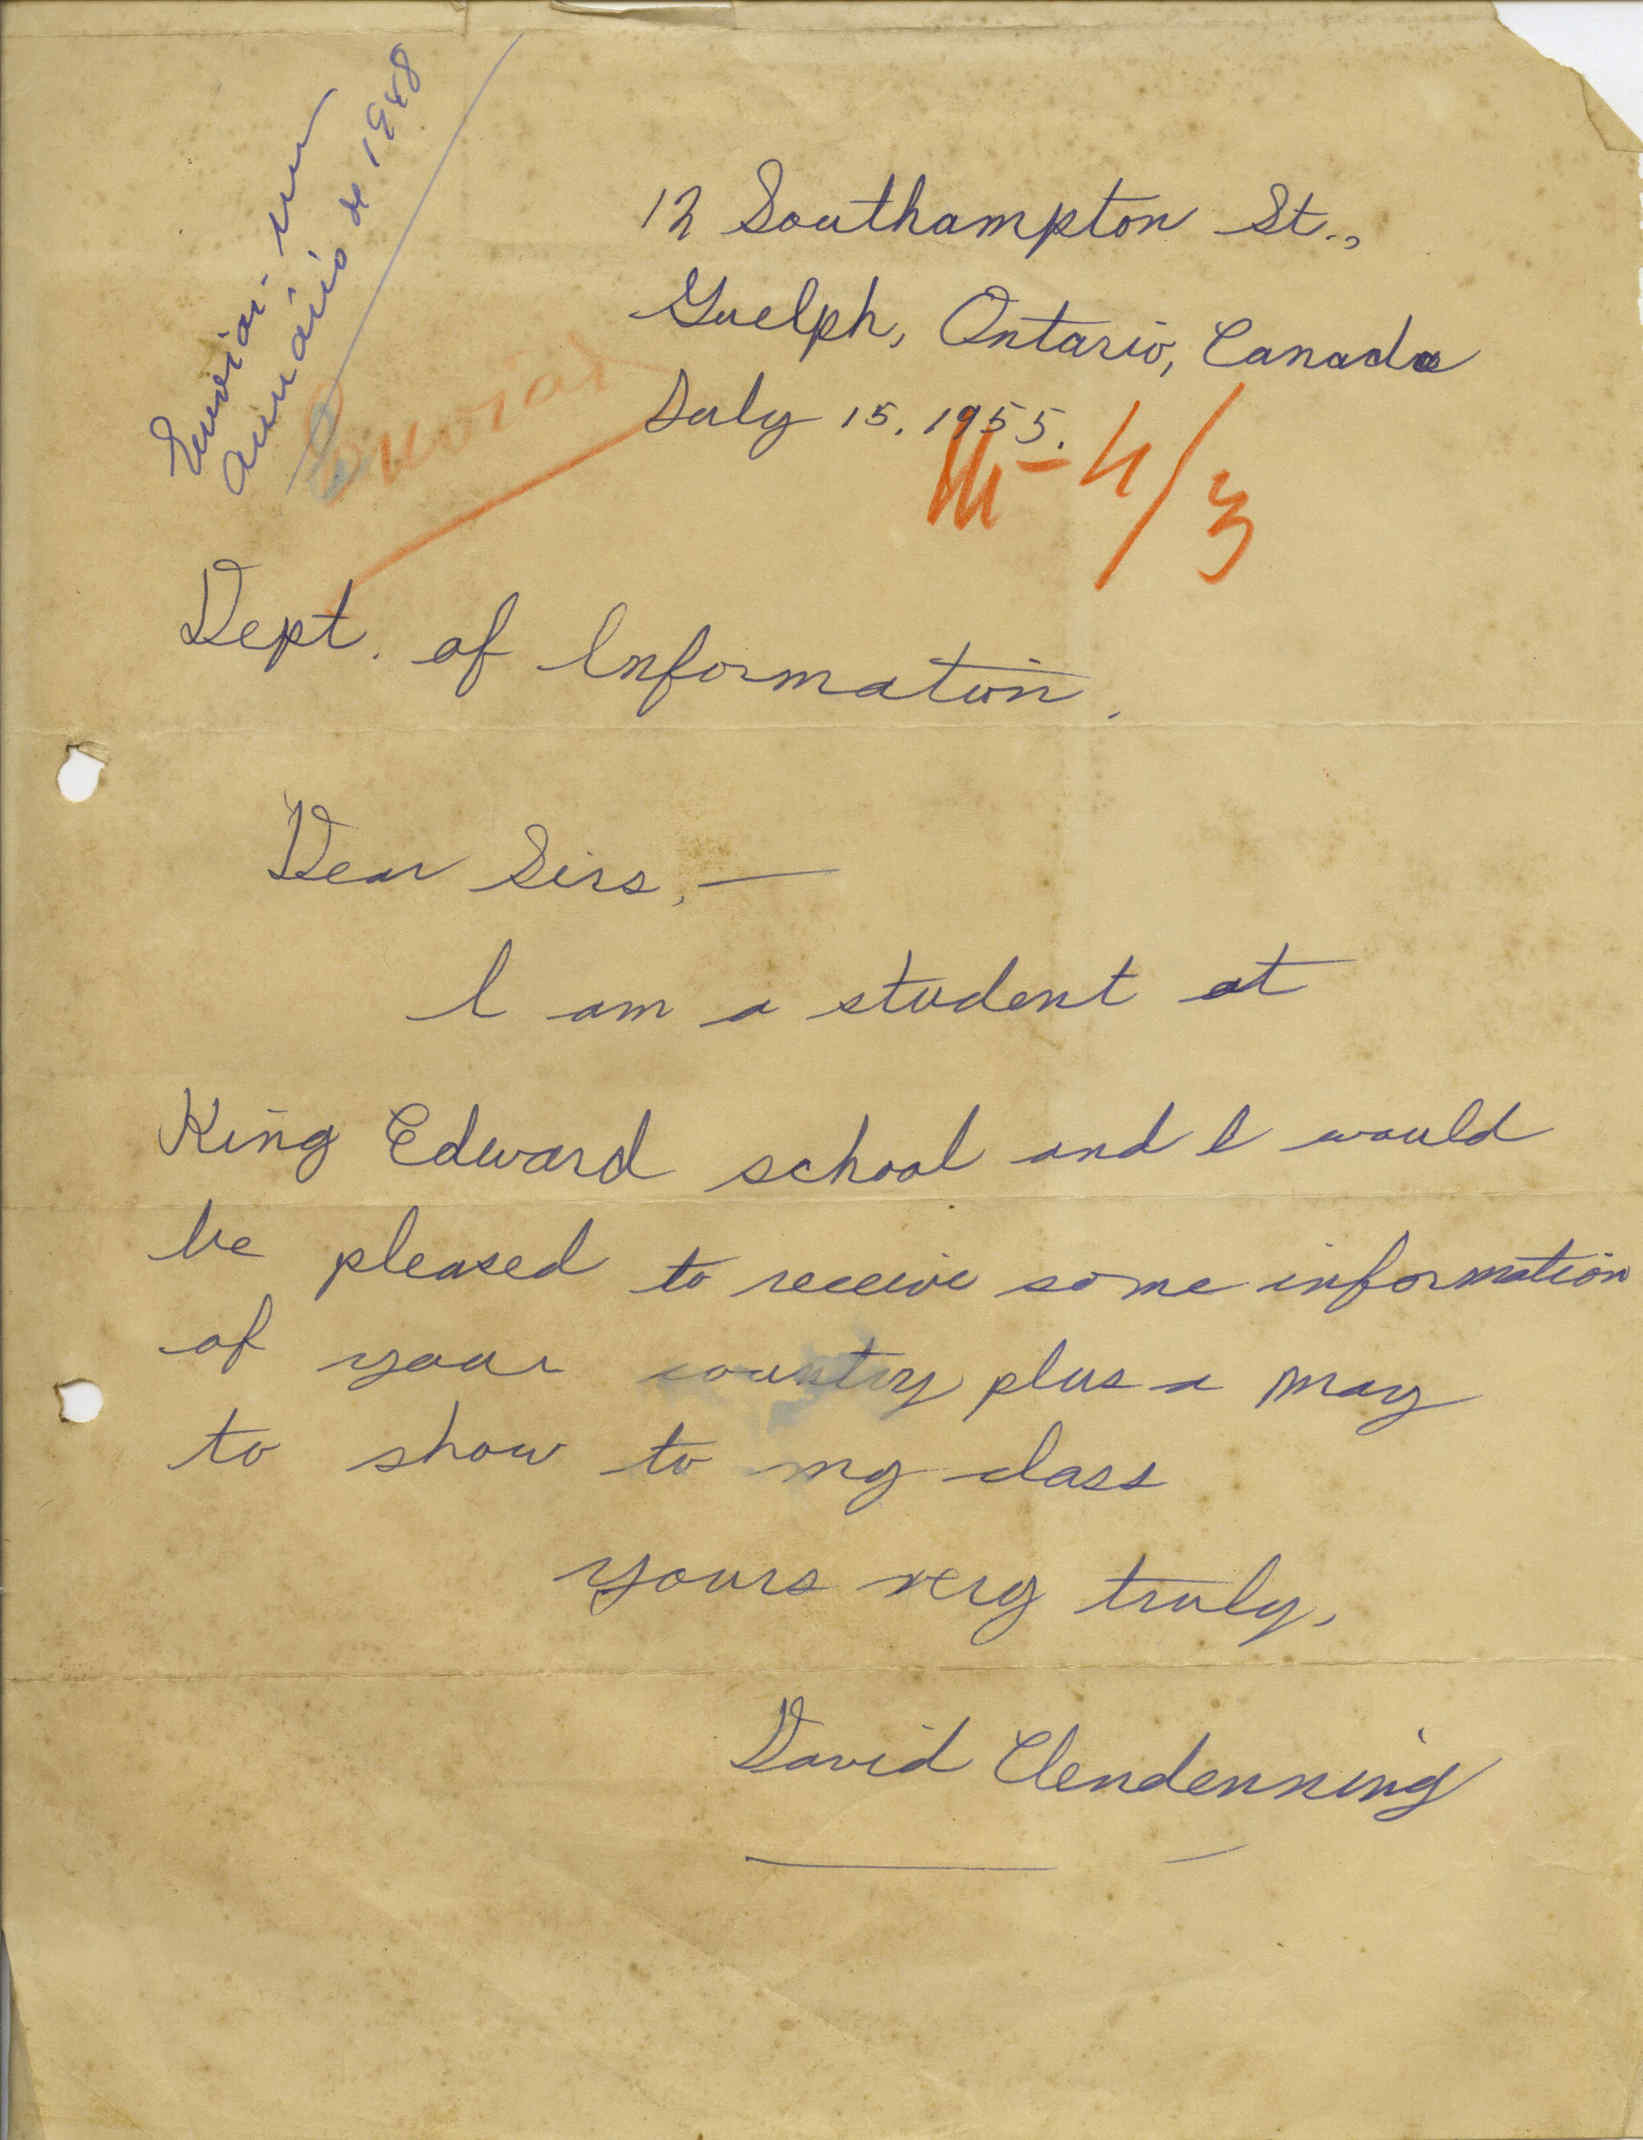 Enviar-um
anuário de 1948
12 Southampton St.,
Guelph, Ontario, Canada
July 15, 1955.
Enviar
III-4/3
Dept. of Information.
Dear Sirs,—
I am a student at
King Edward school and I would
be pleased to receive some information
of your country plus a may
to show to my class
yours very truly,
David Clendenning